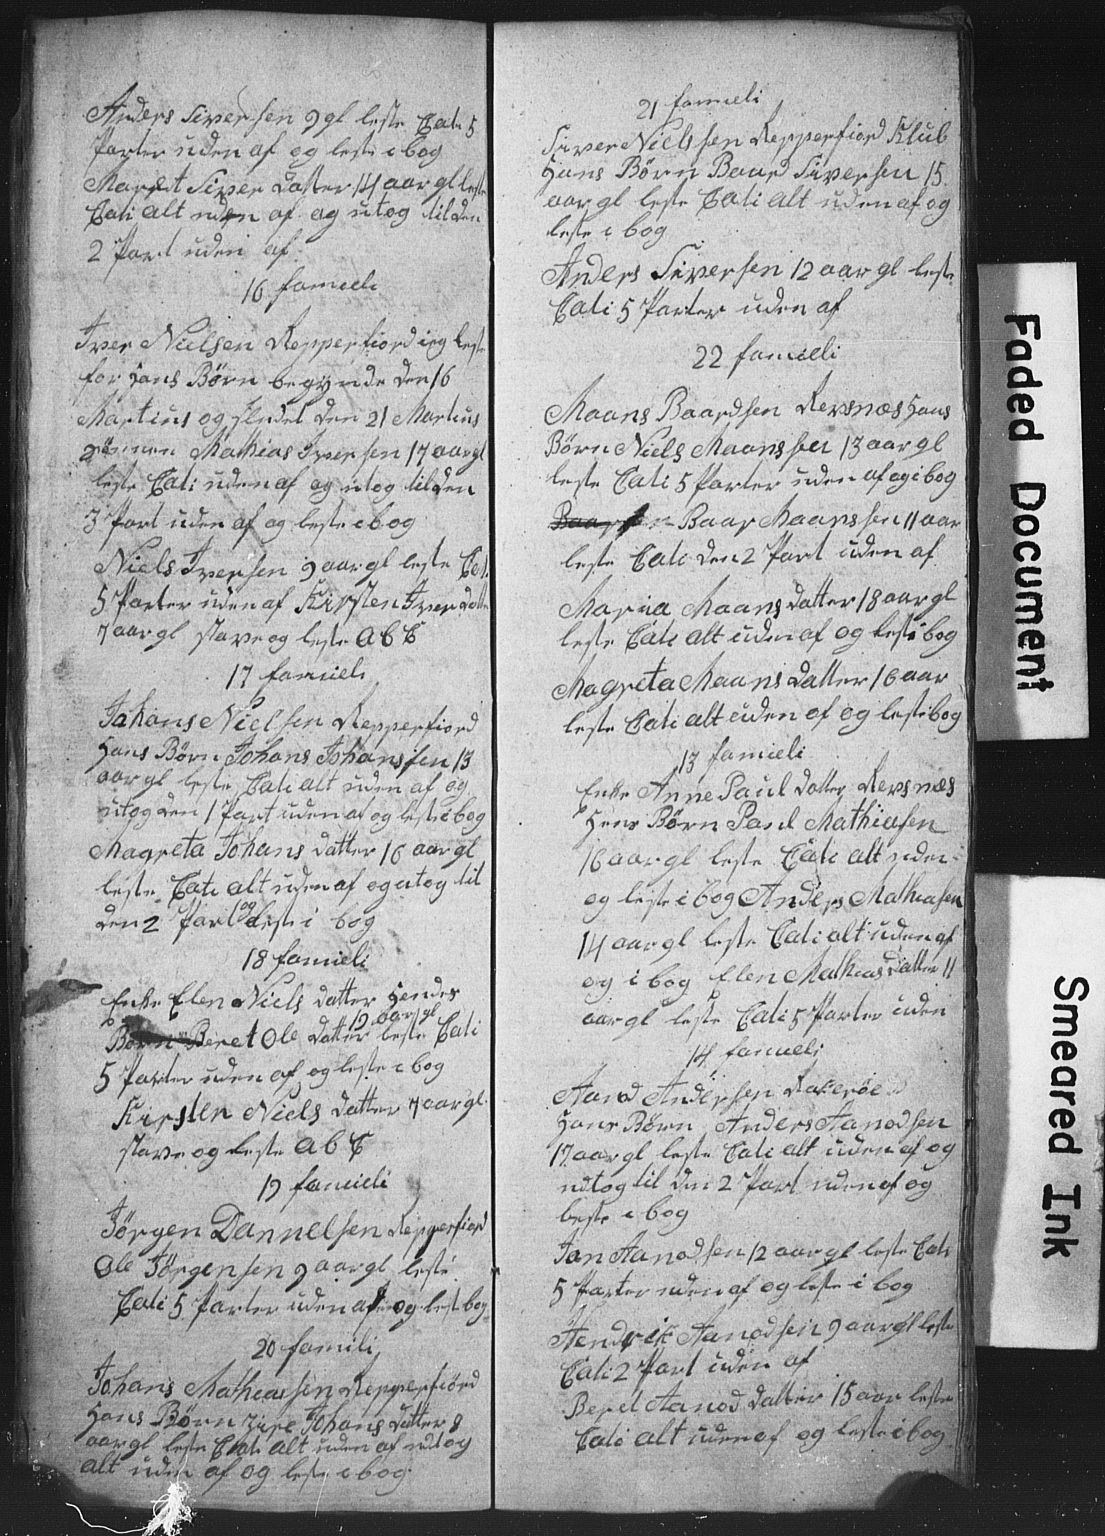 Anders Siversen 9 gl leste Cati 5
Parter uden af og leste i bog
Maret Siver Datter 14 aar gl leste
Cati alt uden af og utog til den
2 Part uden af
16 famieli
Iver Nielsen Repperfiord ieg leste
for Hans Børn begynde den 16
Martius og sledet den 21 Martius
Sønnen Mathias Iversen 17 aar gl
leste Cati uden af og utog til den
3 Part uden af og leste i bog
Niels Iversen 9 aar gl leste Cati
5 Parter uden af Kirsten Iver datter
7 aar gl stave og leste A b C
17 famieli
Johans Nielsen Repperfiord
Hans Børn Johans Johansen 13
aar gl leste Cati alt uden af og
utog den 1 Part uden af og leste i bog
Magreta Johans Datter 16 aar gl
leste Cati alt uden af og utog til
den 2 Part og leste i bog
18 famieli
Enke Elen Niels datter Hendes
9 aar gl
Børn Beret Ole Datter leste Cati
5 Parter uden af og leste i bog
Kirsten Niels Datter 7 aar gl
stave og leste A b C
19 famieli
Jørgen Dannelsen Repperfiord
Ole Jørgensen 9 aar gl leste
Cati 5 Parter uden af og leste bog
20 famili
Johans Mathiassen Repperfiord
Hans Børn Zire Johans datter 8
aar gl leste Cati alt uden af udtog
alt uden af og leste i bog
21 famieli
Siver Nielssen Repperfiord Klub
Hans Børn Baard Siversen 15
aar gl leste Cati alt uden af og
leste i bog
Anders Siversen 12 aar gl leste
Cati 5 Parter uden af
22 famieli
Maans Baardsen Revsnæs Hans
Børn Niels Maanssen 13 aar gl
leste Cati 5 Parter uden af og i bog
Baar Maanssen 11 aar
leste Cati den 2 Part uden af
Maria Maans datter 18 aar gl
leste Cati alt uden af og leste i bog
Magreta Maans datter 16 aar
leste Cati alt uden af og leste bog
13 famieli
Enke Anne Paul datter Revsnæs
Hens Børn Paul Mathiasen
16 aar gl leste Cati alt uden
og leste i bog Anders Mathiasen
14 aar gl leste Cati alt uden af
og i bog Elen Mathias datter 11
aar gl leste Cati 5 Parter uden
14 famieli
Aanod Andersen
Hans Børn Anders Aanodsen
17 aar gl leste Cati alt uden af og
udtog til den 2 Part uden af og
leste i bog
Jon Aanodsen 12 aar gl leste Cati
5 Parter uden af og leste i bog
Hendrik Aanodsen 9 aar gl leste
Cati 2 Part uden af
Beret Aanod datter 15 aar leste
Cati alt uden af og leste i bog
Faded Document
Smeared Ink